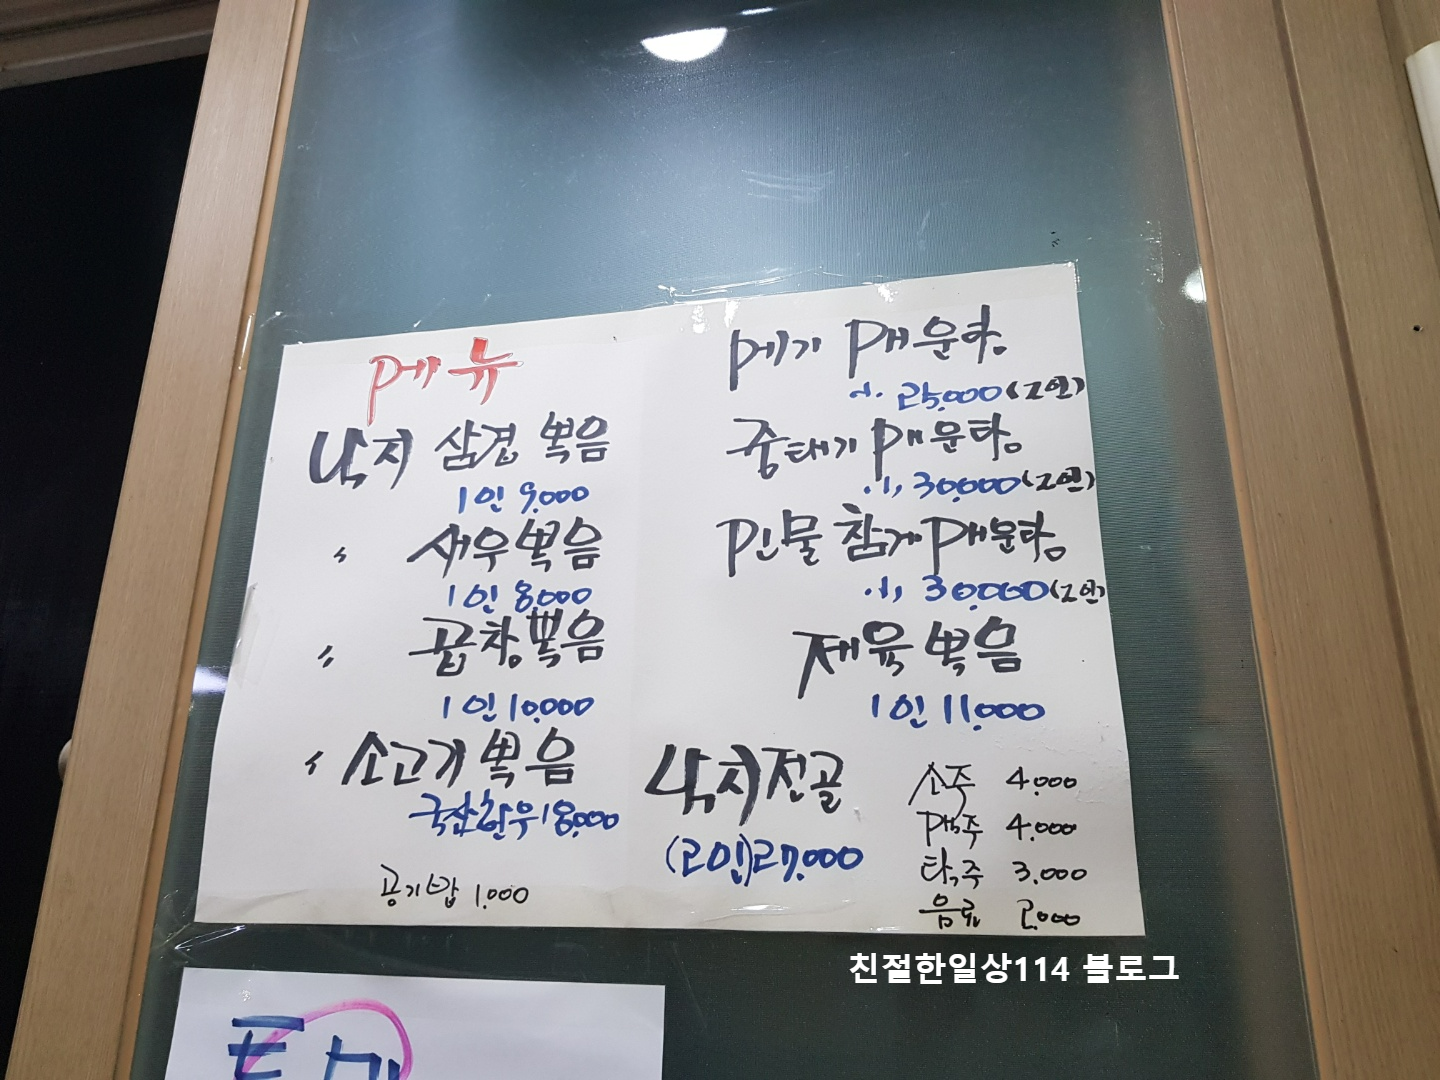 메뉴
낙지 삼겹 볶음
1인 9,000
〃 새우볶음
1인 8,000
〃 곱창볶음
1인 10,000
〃 소고기볶음
국산한우 18,000
공기밥 1,000
메기 매운탕
小 25,000 (2인)
중태기 매운탕
小 30,000 (2인)
민물 참게 매운탕
小 30,000 (2인)
제육볶음
1인 11,000
낙지전골
(2인) 27,000
소주 4,000
맥주 4,000
탁주 3,000
음료 2,000
친절한일상114 블로그